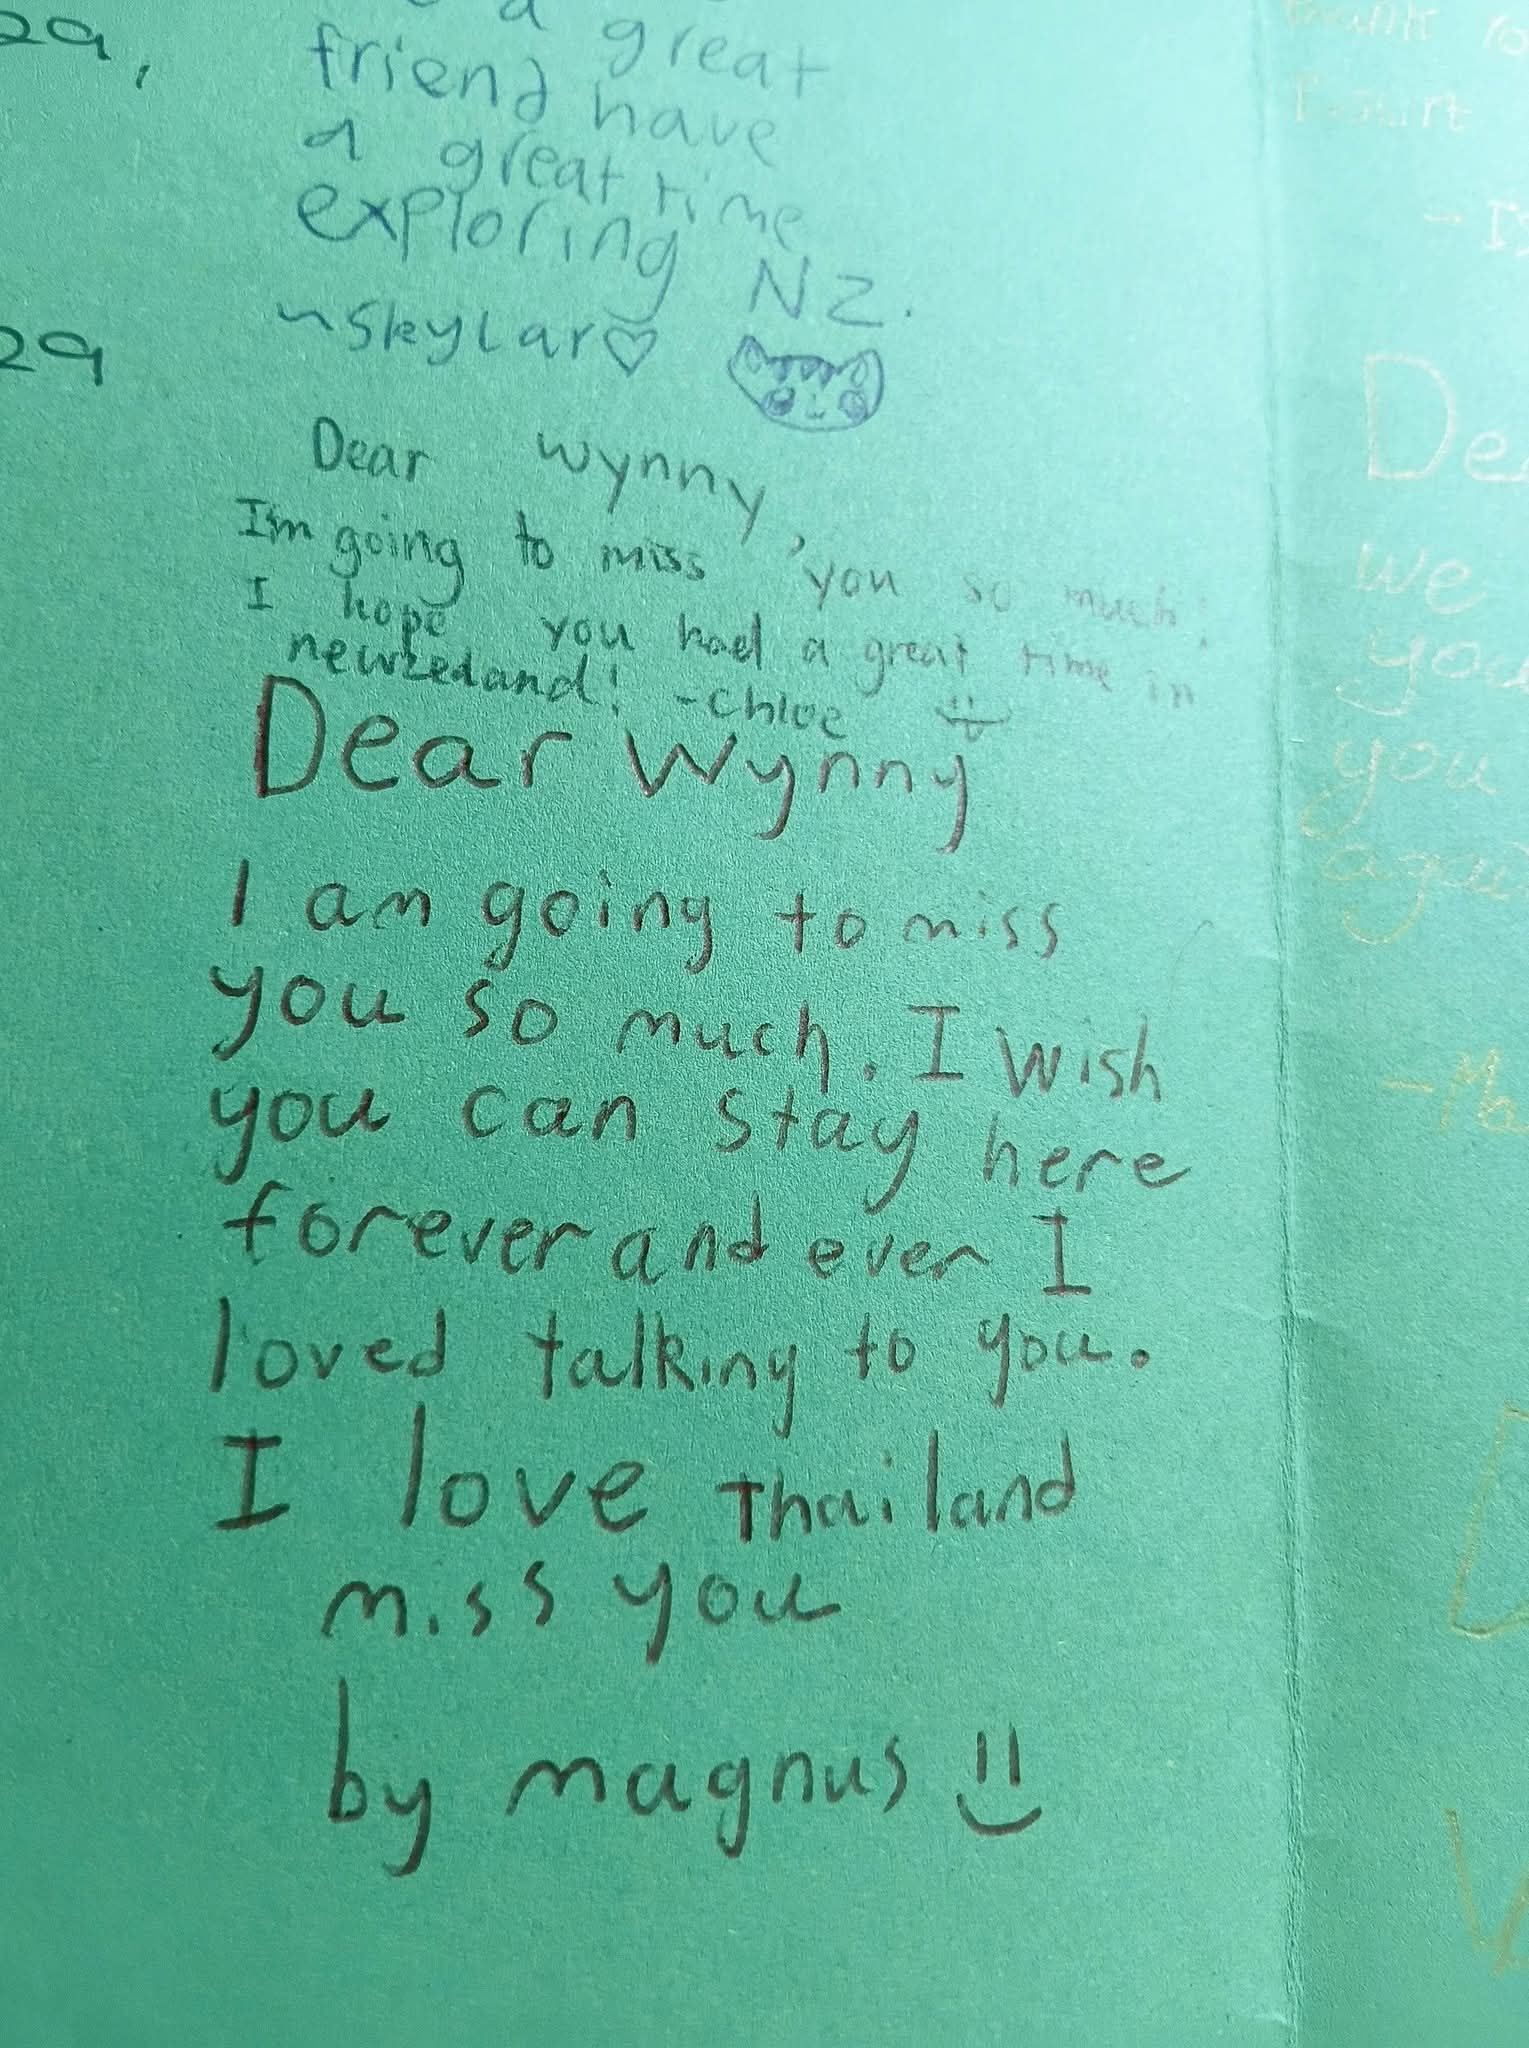 a great
friend have
a great time
exploring NZ.
~Skylar♡
Dear wynny,
I'm going to miss you so much!
I hope you had a great time in
newzedand! -Chloe
Dear Wynny
I am going to miss
you so much. I wish
you can stay here
forever and ever I
loved talking to you.
I love Thailand
miss you
by magnus
we
you
you